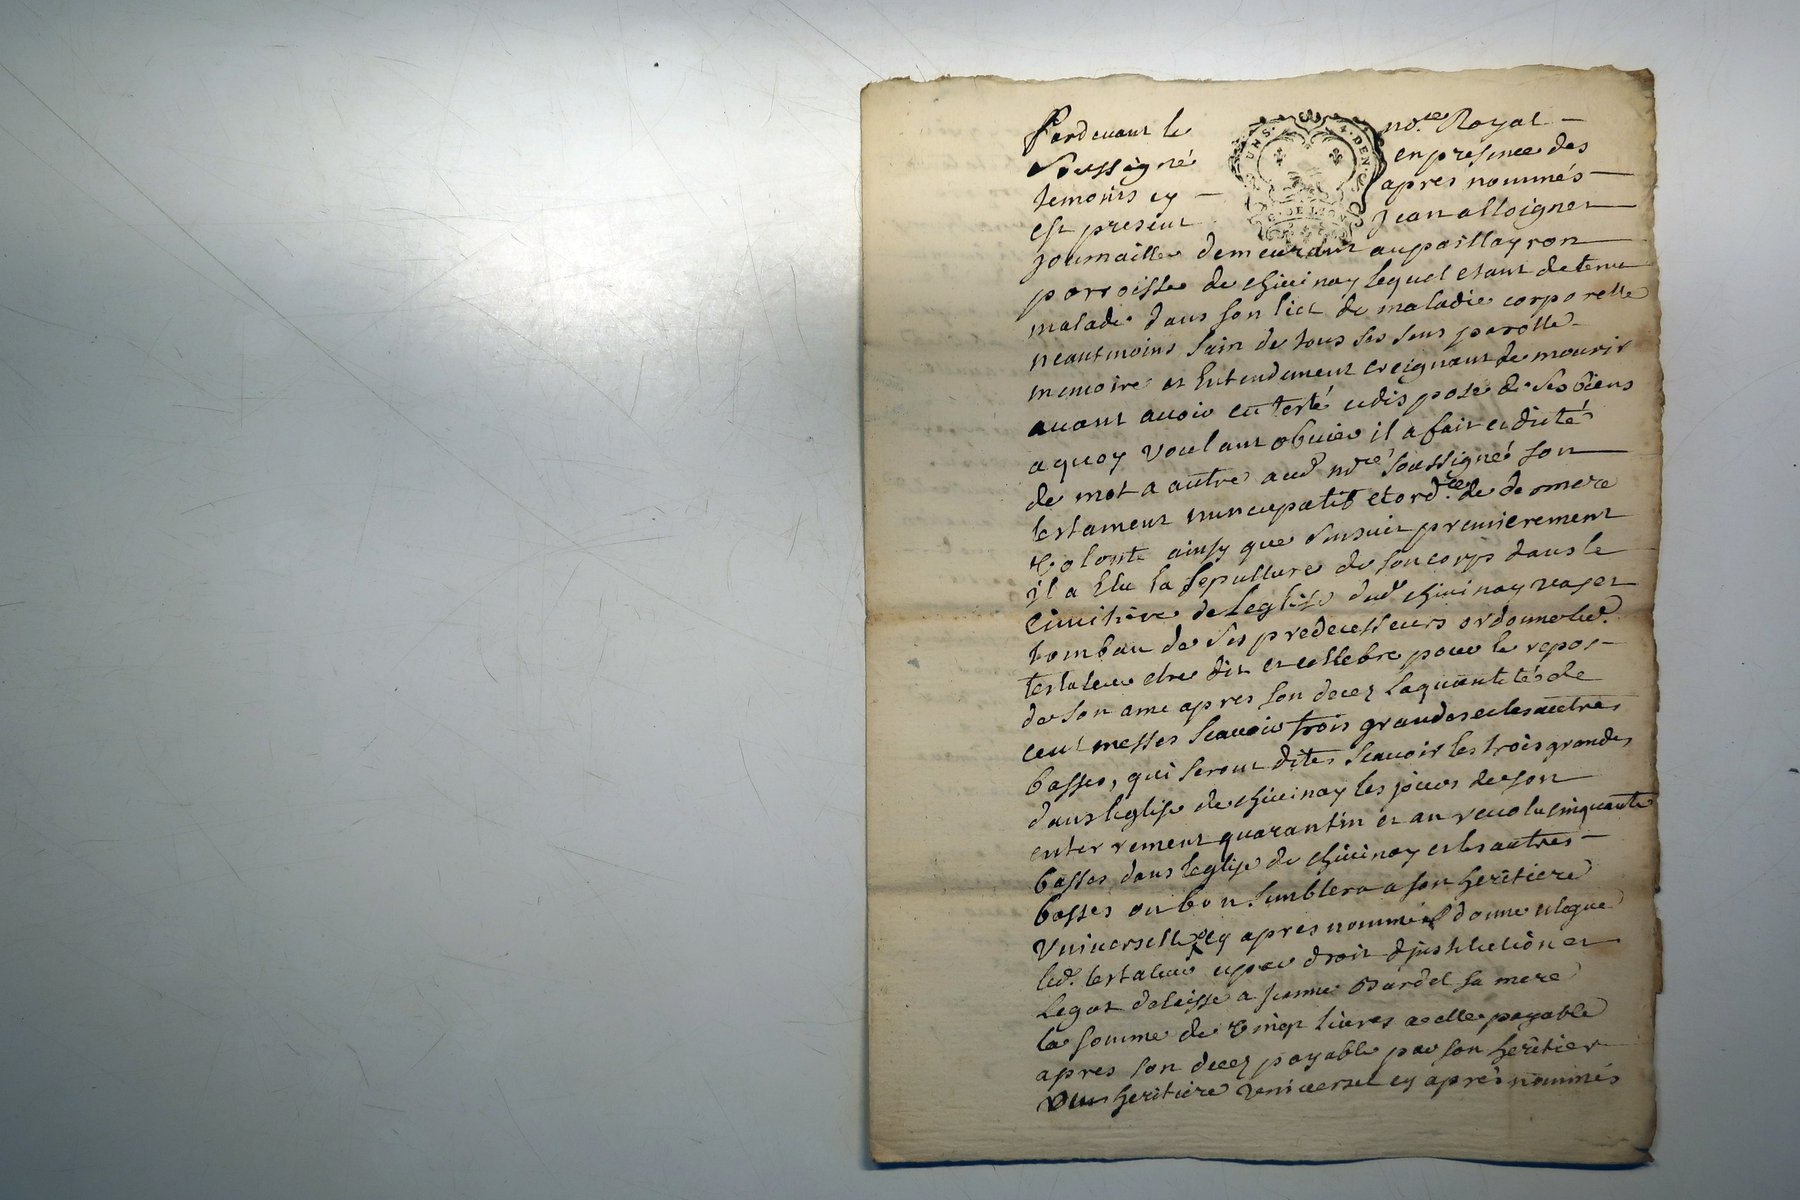 Pardevant le no.re Royal
Soussigné en presence des
temoins cy apres nommés
est present Jean alloignet
journaillier demeurant au paillayron
parroisse de chivinay lequel etant detenu
malade dans son lict de maladie corporelle
neantmoins sain de tous ses sens parolle
memoire et Entendement creignant de mourir
avant avoir en testé et dispose de ses biens
a quoy voulant obvier il a fait et dicté
de mot a autre aud no.re soussigné son
testament nuncupatif et ord.ce de derniere
volonté ainsy que s'ensuit premierement
il a Elu la sepulture de son corps dans le
cimitière de Leglise dud chivinay vas et
tombau de ses predecesseurs ordonne led.
testateur etre dit et cellebre pour le repos
de son ame apres son decez la quantité de
cent messes scavoir trois grandes et les autres
basses, qui seront dites scavoir les trois grandes
dans leglise de chivinay les jours de son
enterrement quarantin et an revolu cinquante
basses dans leglise de chivinay et les autres
basses ou bon semblera a son heritiere
Universelle cy apres nommée donne et legue
led. testateur et par droit d'institution et
Legat delaisse a Jeanne Bardel sa mere
la somme de vingt livres a elle payable
apres son decez payable par son heritier
heritiere universel cy après nommés
UN S. 4. DEN.
G. DE LYON